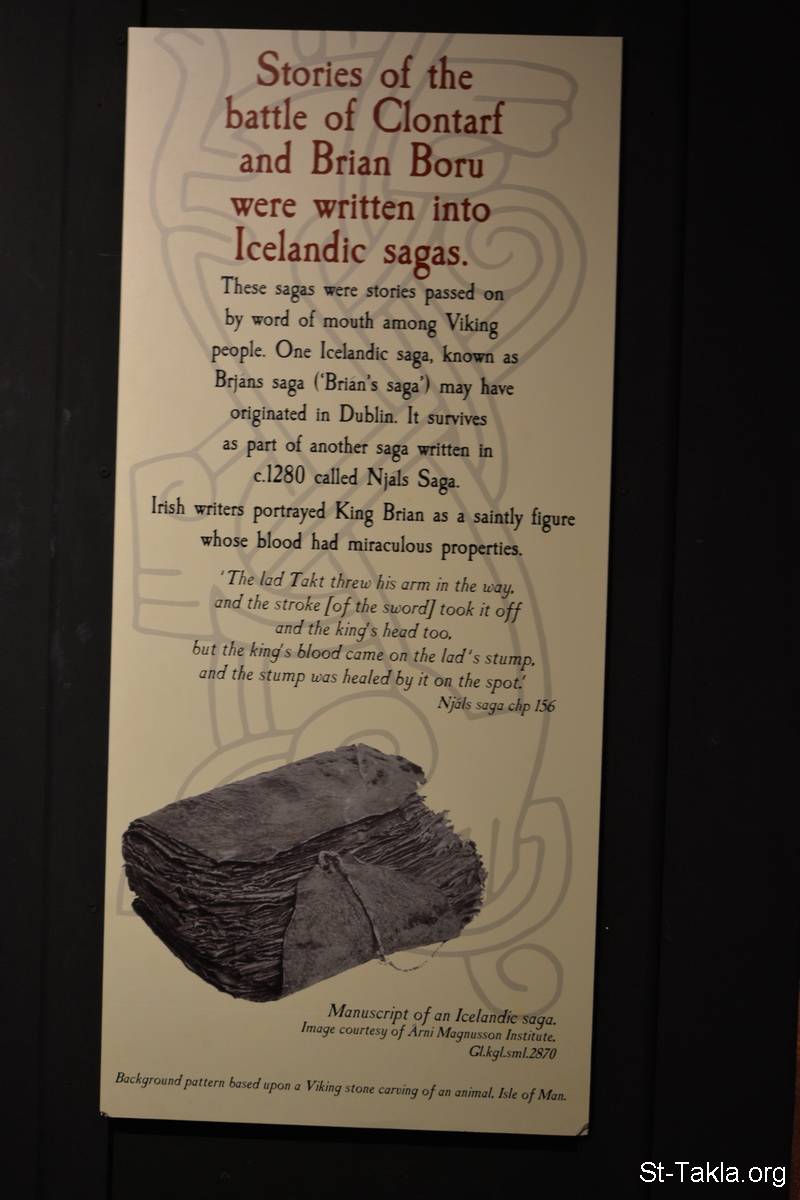 Stories of the
battle of Clontarf
and Brian Boru
were written into
Icelandic sagas.
These sagas were stories passed on
by word of mouth among Viking
people. One Icelandic saga, known as
Brjáns saga (‘Brian’s saga’) may have
originated in Dublin. It survives
as part of another saga written in
c.1280 called Njáls Saga.
Irish writers portrayed King Brian as a saintly figure
whose blood had miraculous properties.
‘The lad Takt threw his arm in the way,
and the stroke [of the sword] took it off
and the king's head too,
but the king's blood came on the lad's stump,
and the stump was healed by it on the spot.’
Njáls saga chp 156
Manuscript of an Icelandic saga.
Image courtesy of Árni Magnusson Institute.
Gl.kgl.sml.2870
Background pattern based upon a Viking stone carving of an animal, Isle of Man.
St-Takla.org